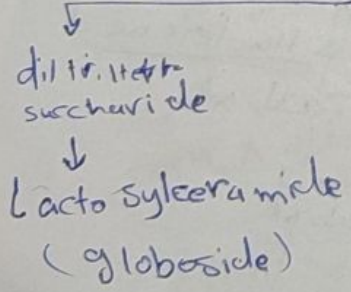 ↓
di/tri/tetra
succharide
↓
Lactosylceramide
(globoside)